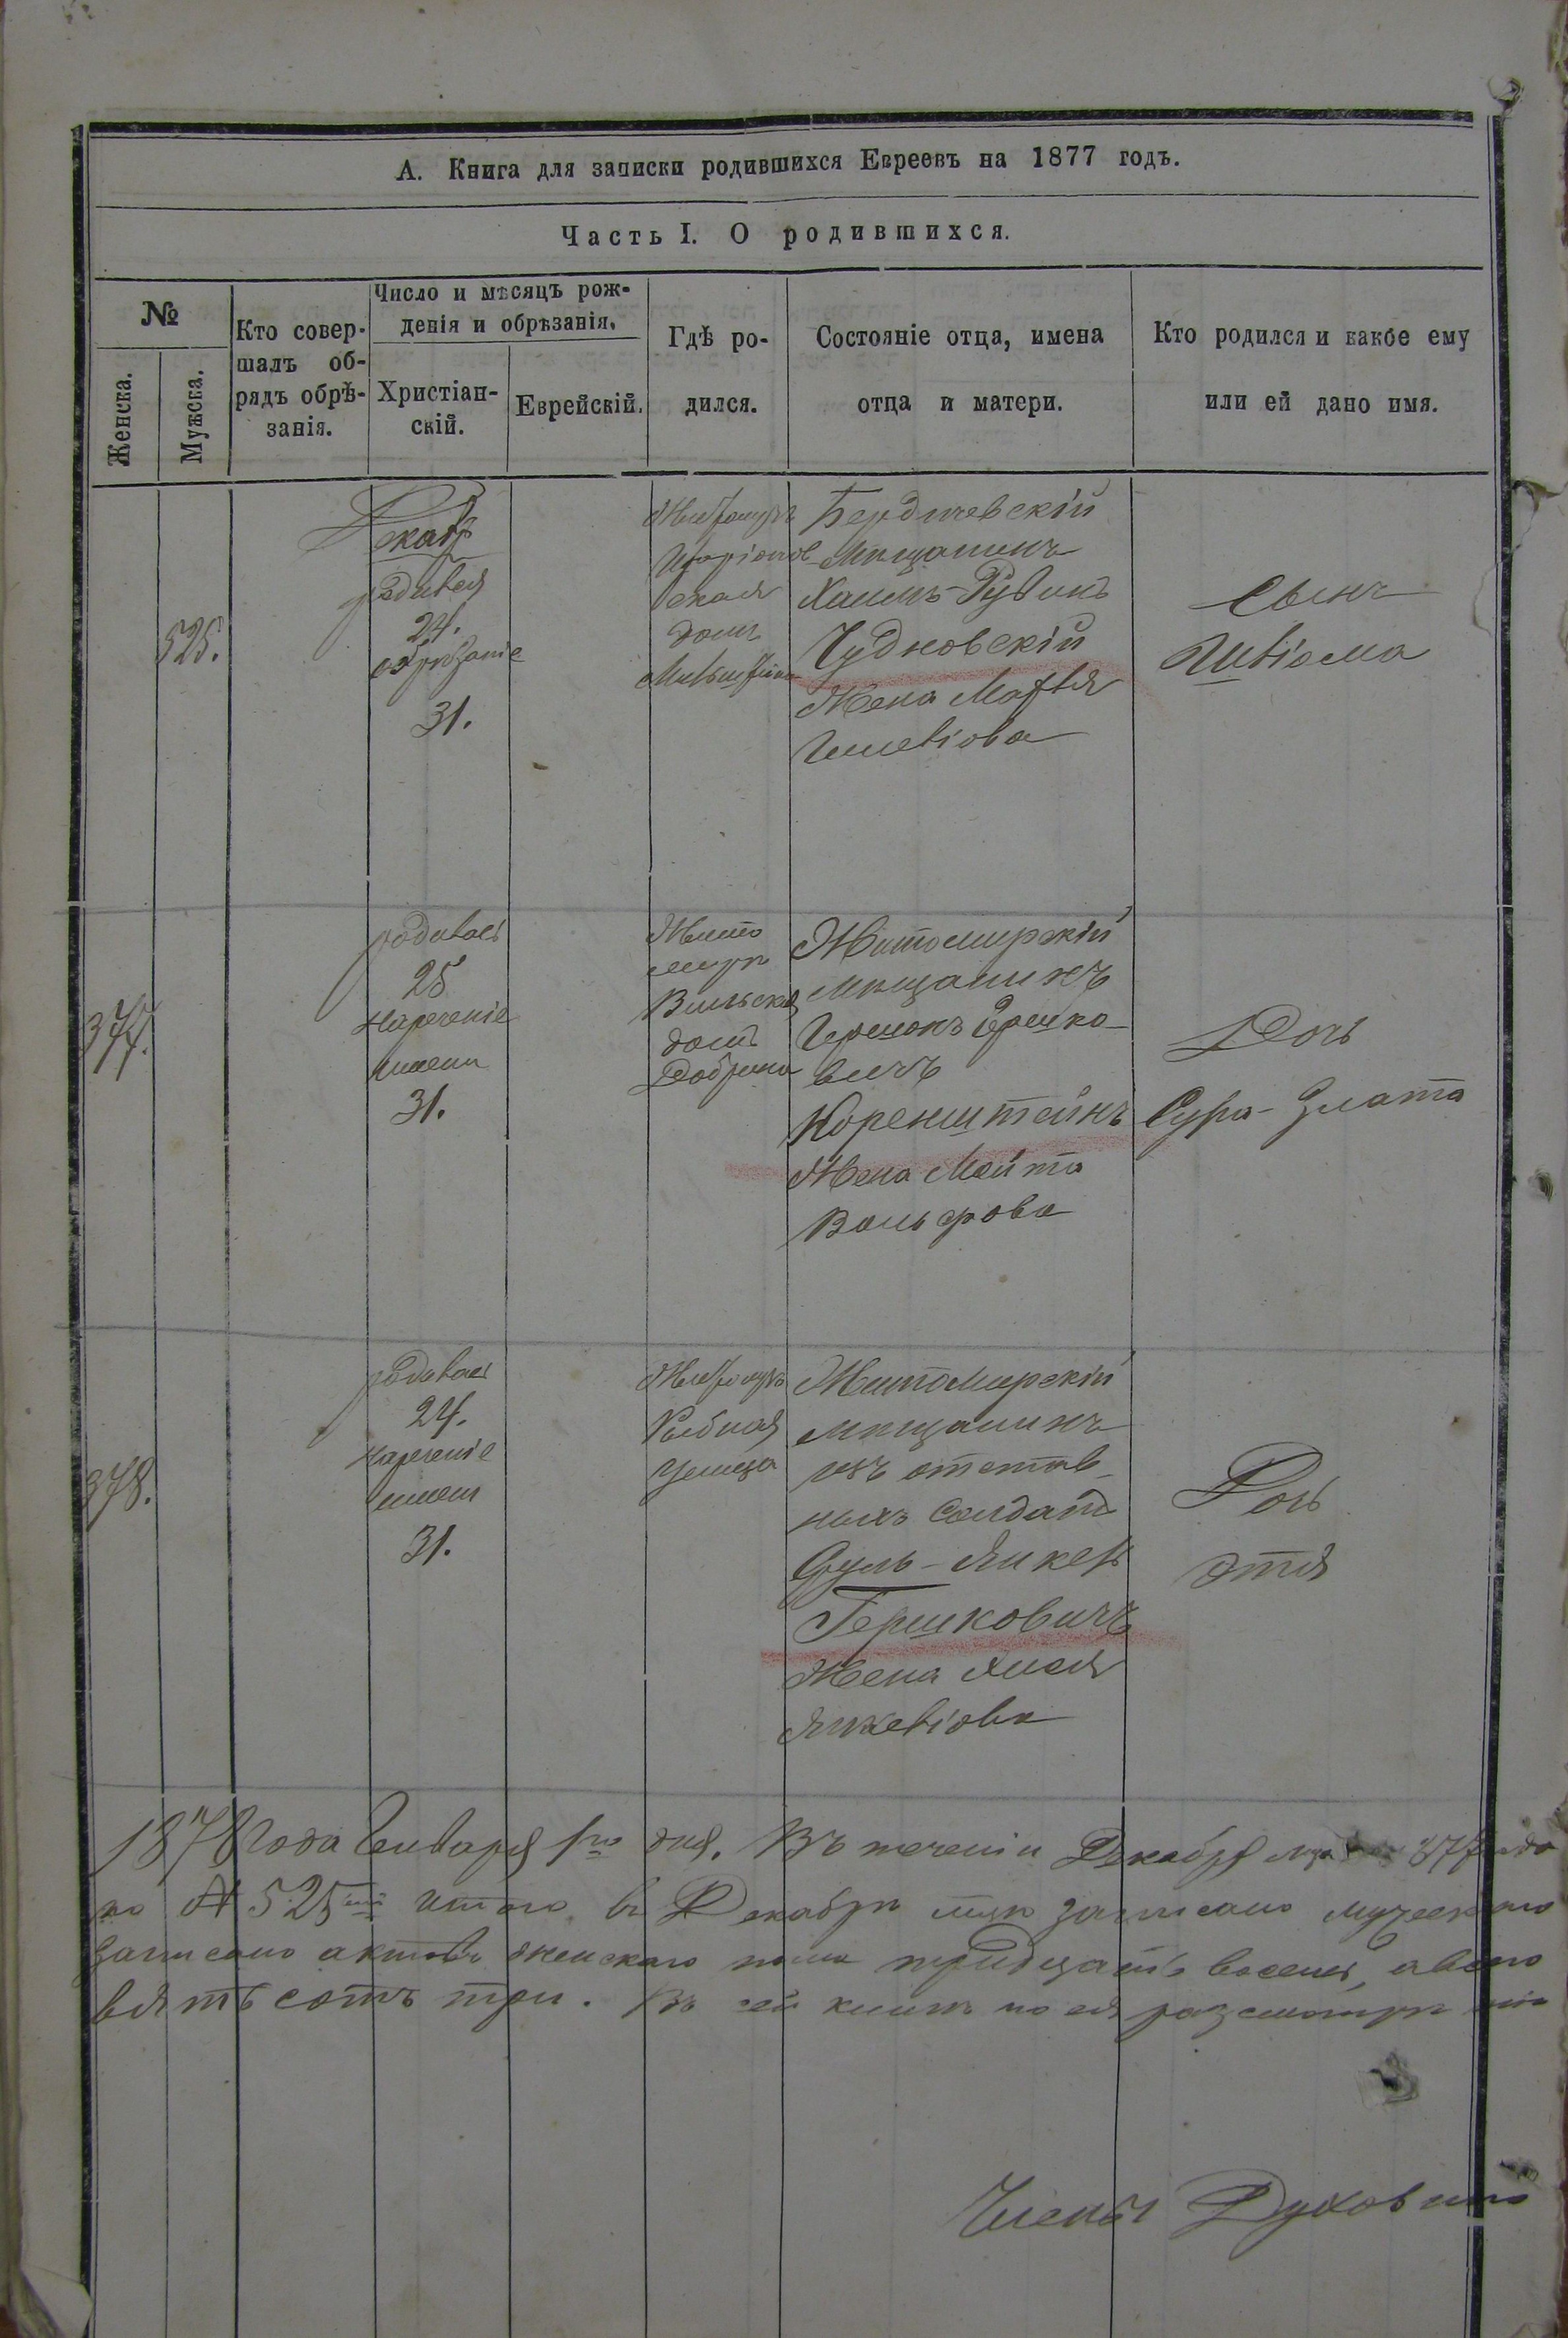 А. Книга для записки родившихся Евреевъ на 1877 годъ.
Часть I. О родившихся.
№
Женска.
Мужска.
Кто совер-
шалъ об-
рядъ обрѣ-
занія.
Число и мѣсяцъ рож-
денія и обрѣзанія.
Христіан-
скій.
Еврейскій.
Гдѣ ро-
дился.
Состояніе отца, имена
отца и матери.
Кто родился и какое ему
или ей дано имя.
525.
Декабр
родився
24.
обрѣзаніе
31.
Житомирѣ
ская
домъ
Бердичевскій
Мѣщанинъ
Хаимъ-Рувинъ
Чудновскій
Жена
Сынъ
377.
родилась
25
Нареченіе
имени
31.
Жито
мирѣ
Вильская
домъ
Житомирскій
мѣщанинъ
Гершко-
вичъ
Коренштейнъ
Жена
Вольфова
Дочь
Сура-Злата
378.
родилась
24.
нареченіе
имени
31.
Житомирѣ
Рыбная
улица
Житомирскій
мѣщанинъ
изъ отстав-
ныхъ солдатъ
Сруль-
Гершковичъ
Жена
Дочь
Этля
1878 года Января 1го дня. Въ теченіи Декабря мца
по № 525 итого въ Декабрѣ мцѣ записано мужескаго
записано актовъ женскаго пола тридцать восемь, а всего
вятьсотъ три. Въ сей книгѣ по ея разсмотрѣніи
Члены Духовнаго